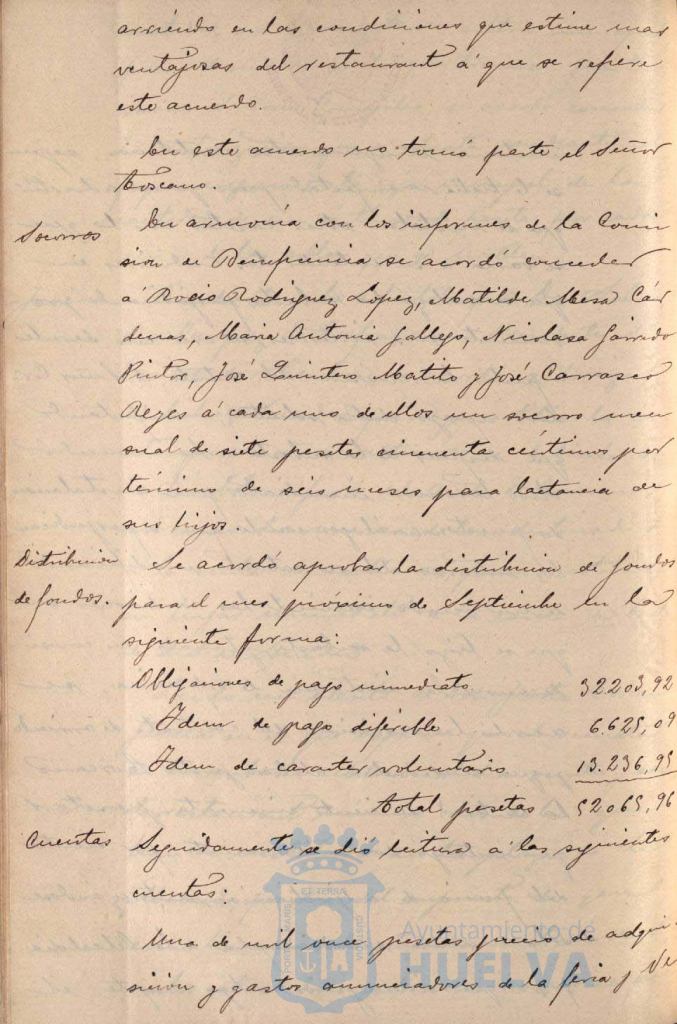 arriendo en las condiciones que estime mas
ventajosas del restaurant á que se refiere
este acuerdo.
En este acuerdo no tomó parte el Señor
Toscano.
Socorros
En armonía con los informes de la Comi
sion de Beneficencia se acordó conceder
á Rocio Rodriguez Lopez, Matilde Mesa Cár
denas, Maria Antonia Gallego, Nicolasa Garrido
Pintor, José Quintero Matito y José Carrasco
Reyes á cada uno de ellos un socorro men
sual de siete pesetas cincuenta céntimos por
término de seis meses para lactancia de
sus hijos.
Distribucion
de fondos.
Se acordó aprobar la distribucion de fondos
para el mes próximo de Septiembre en la
siguiente forma:
Obligaciones de pago inmediato 32.203,92
Idem de pago diferible 6.625,09
Idem de caracter voluntario 13.236,95
total pesetas 52065,96
Cuentas
Seguidamente se dió lectura á las siguientes
cuentas:
Una de mil once pesetas precio de adqui-
sición y gastos anunciadores de la feria y Ve
Ayuntamiento de
HUELVA